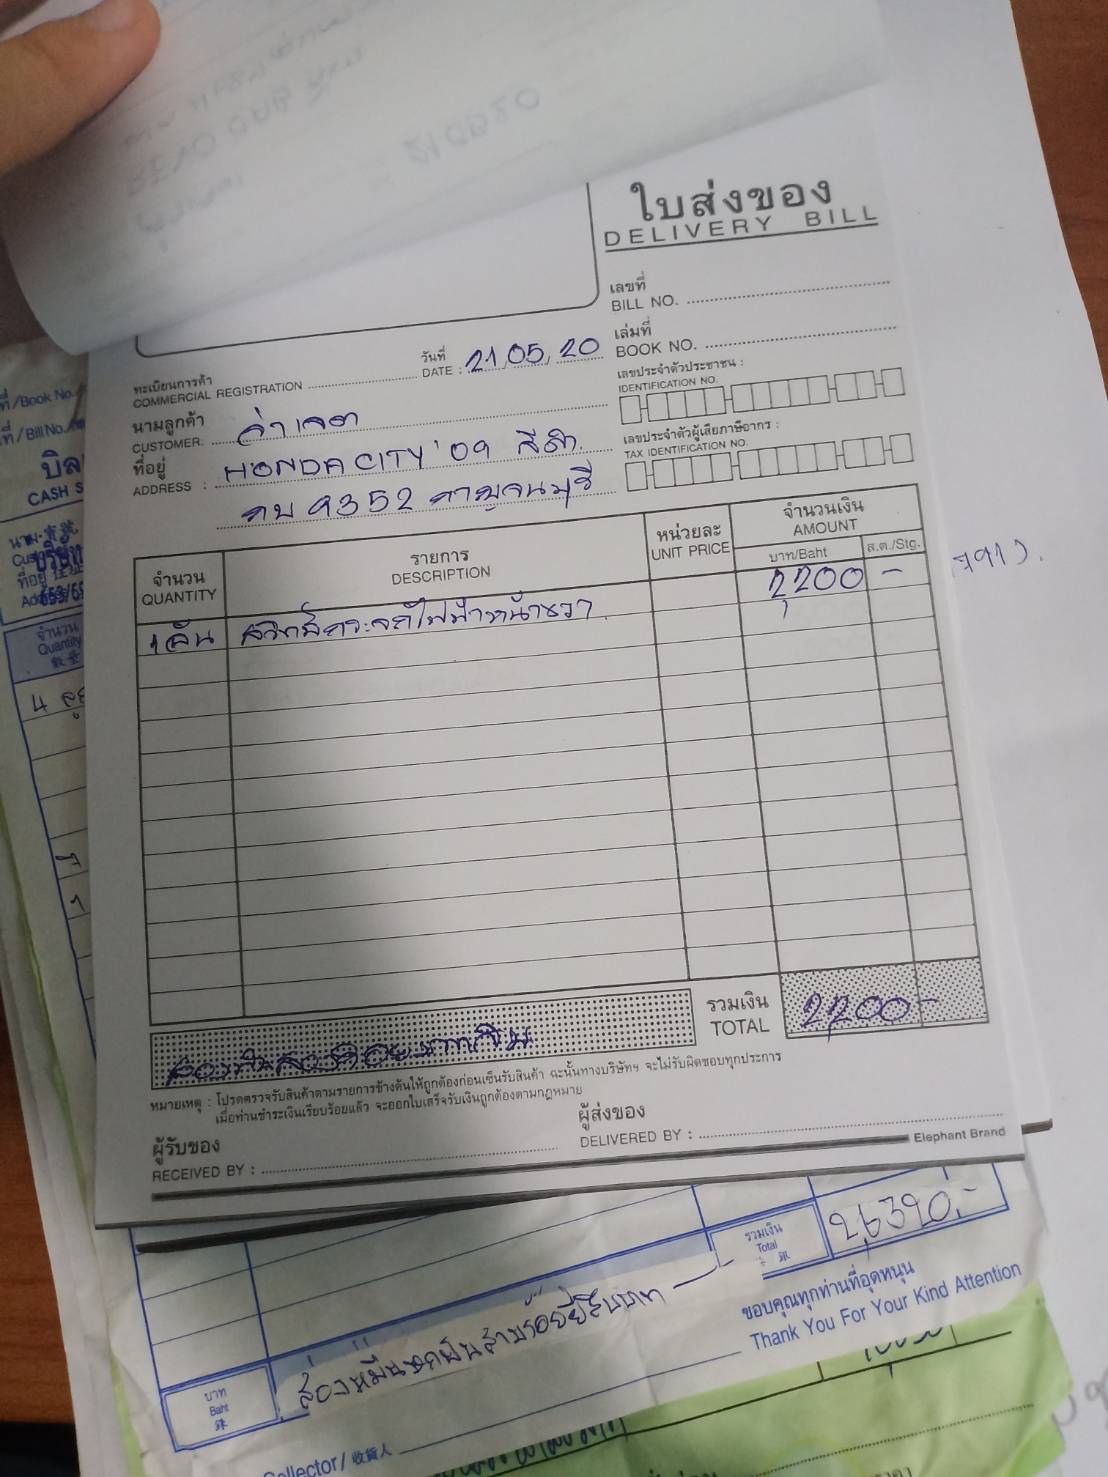 ใบส่งของ
DELIVERY BILL
เลขที่
BILL NO.
เล่มที่
BOOK NO.
วันที่
DATE : 21,05,20
ทะเบียนการค้า
COMMERCIAL REGISTRATION
เลขประจำตัวประชาชน :
IDENTIFICATION NO.
นามลูกค้า
CUSTOMER.
เลขประจำตัวผู้เสียภาษีอากร :
TAX IDENTIFICATION NO.
ที่อยู่
ADDRESS : HONDA CITY '09 สีดำ
กบ 9352 กาญจนบุรี
จำนวน
QUANTITY
รายการ
DESCRIPTION
หน่วยละ
UNIT PRICE
จำนวนเงิน
AMOUNT
บาท/Baht
ส.ต./Stg.
1 อัน สวิทช์กระจกไฟฟ้าหน้าขวา 2,200 -
รวมเงิน
TOTAL
2,200 -
สองพันสองร้อยบาทถ้วน
หมายเหตุ : โปรดตรวจรับสินค้าตามรายการข้างต้นให้ถูกต้องก่อนเซ็นรับสินค้า ฉะนั้นทางบริษัทฯ จะไม่รับผิดชอบทุกประการ
เมื่อท่านชำระเงินเรียบร้อยแล้ว จะออกใบเสร็จรับเงินถูกต้องตามกฎหมาย
ผู้รับของ
RECEIVED BY :
ผู้ส่งของ
DELIVERED BY :
Elephant Brand
ที่/Book No.
ที่/Bill No.
บิล
CASH S
จำนวน
Quantity
数量
รวมเงิน
Total
26,390.-
บาท
Baht
銖
สองหมื่นหกพันสามร้อย
ขอบคุณทุกท่านที่อุดหนุน
Thank You For Your Kind Attention
ollector/ 收貨人